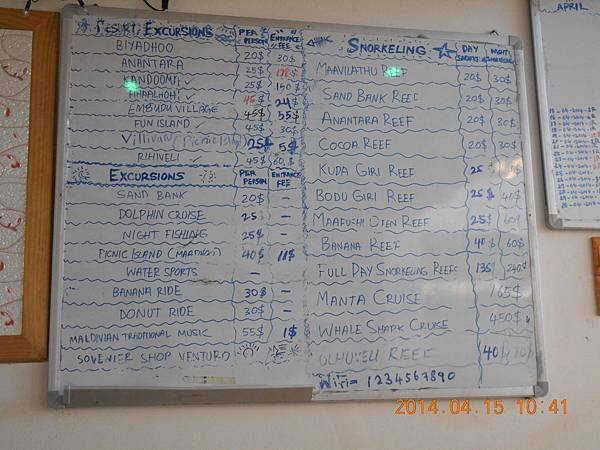 EXCURSIONS PER PERSON ENTRANCE FEE
BIYADHOO 20$ 30$
ANANTARA 25$
KANDOOMA 25$ 150$
FIHAALHOHI
EMBUDU VILLAGE 45$ 55$
FUN ISLAND 45$ 30$
25$ 5$
RIHIVELI 45$ 60$
EXCURSIONS PER PERSON ENTRANCE FEE
SAND BANK 20$ —
DOLPHIN CRUISE 25$ —
NIGHT FISHING 25$ —
PICNIC ISLAND 40$ 11$
WATER SPORTS — —
BANANA RIDE 30$ —
DONUT RIDE 30$ —
MALDIVIAN TRADITIONAL MUSIC 55$ 1$
SOVENIER SHOP VENTURO
SNORKELING DAY
MAAVILATHU REEF 20$ 30$
SAND BANK REEF 20$ 30$
ANANTARA REEF 20$ 30$
COCOA REEF 20$ 30$
KUDA GIRI REEF 25$
BODU GIRI REEF 25$ 40$
MAAFUSHI REEF 25$ 60$
BANANA REEF 40$ 60$
FULL DAY SNORKELING REEFS 135$ 240$
MANTA CRUISE 165$
WHALE SHARK CRUISE 450$
OLHUVELI REEF 40$
= 1234567890
APRIL
2014.04.15 10:41